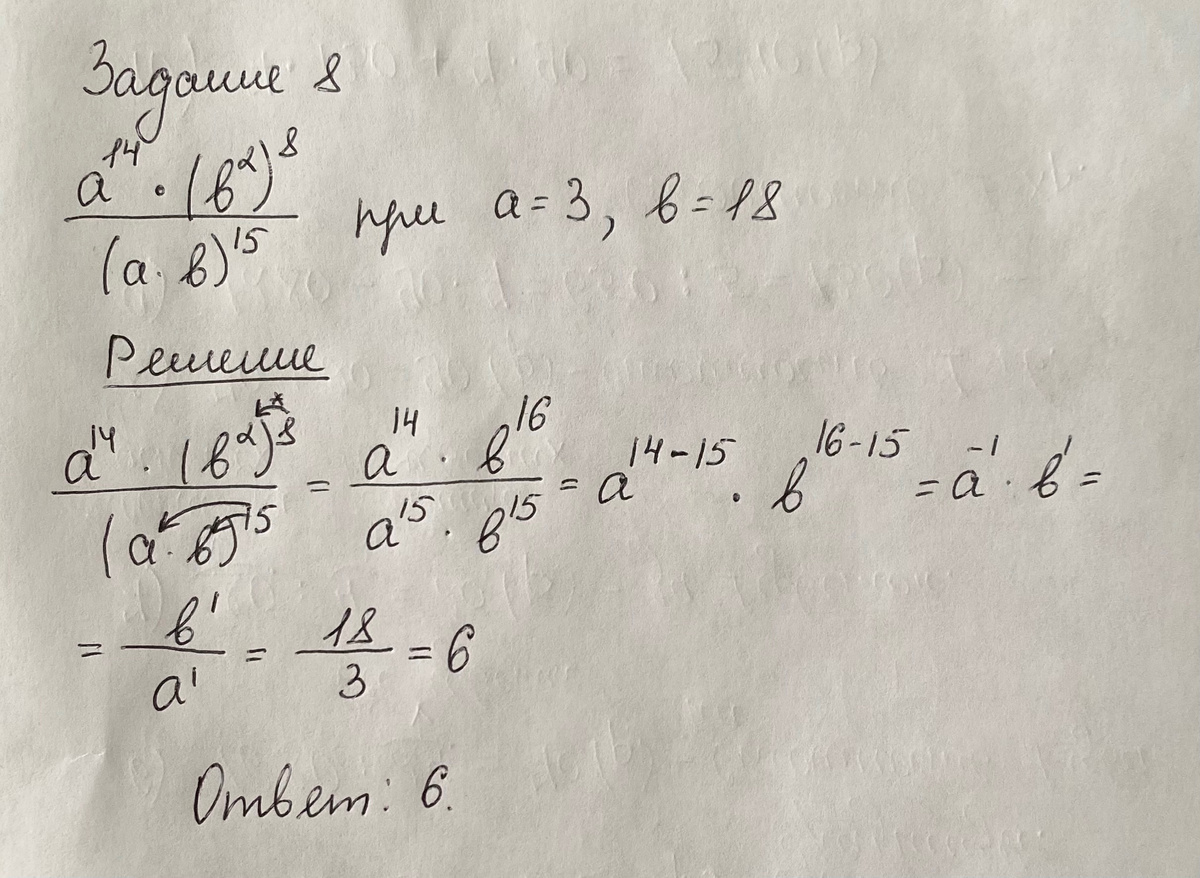 Задание 8
a^14 · (b^2)^8 / (a · b)^15 при a = 3, b = 18
Решение
a^14 · (b^2)^8 / (a · b)^15 = a^14 · b^16 / a^15 · b^15 = a^14-15 · b^16-15 = a^-1 · b^1 =
= b^1 / a^1 = 18 / 3 = 6
Ответ: 6.